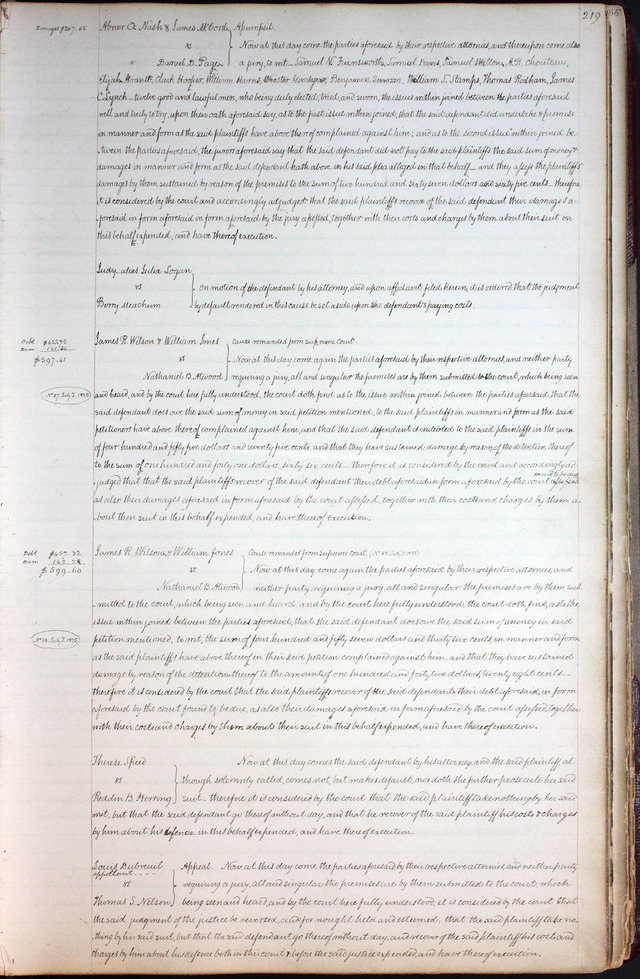 219
Damages $267.65
Abner Q. Nash & James McCord } Assumpsit
vs Now at this day come the parties aforesaid by their respective attornies, and thereupon come also
Daniel D. Page a jury, to wit— Samuel N. Farnsworth, Samuel Lewis, Samuel Wilton, A.R. Chouteau,
Elijah Grantt, Clark Hooper, William Harris, Wooster Goodyear, Benjamin Sanson, William S. Stamps, Thomas Rodham, James
C. Lynch— twelve good and lawful men, who being duly elected, tried, and sworn, the issues within joined between the parties aforesaid
well and truly to try, upon their oath aforesaid say, as to the first issue within joined, that the said defendant did undertake & promise
in manner and form as the said plaintiffs have above thereof complained against him; and as to the second issue within joined be-
tween the parties aforesaid, the jurors aforesaid say that the said defendant did not pay to the said plaintiffs the said sum of money &
damages in manner and form as the said defendant hath above in his said plea alleged in that behalf— and they assess the plaintiffs'
damages by them sustained by reason of the premises to the sum of two hundred and sixty seven dollars and sixty five cents— therefore
it is considered by the court and accordingly adjudged that the said plaintiffs recover of the said defendant their damages a-
foresaid in form aforesaid in form aforesaid by the jury assessed, together with their costs and charges by them about their suit in
this behalf expended, and have thereof execution.
Judy alias Julia Logan
vs } on motion of the defendant by his attorney, and upon affidavit filed herein, it is ordered that the judgment
Berry Meachum by default rendered in this cause be set aside upon the defendant's paying costs.
Debt $455.75
Dam 141.66
$597.41
James R. Wilson & William Jones } Cause remanded from supreme court.
vs Now at this day come again the parties aforesaid by their respective attornies, and neither party
Nathaniel B. Atwood requiring a jury, all and singular the premises are by them submitted to the court, which being seen
No 87. July T. 1835
and heard, and by the court here fully understood, the court doth find, as to the issue within joined between the parties aforesaid, that the
said defendant does owe the said sum of money in said petition mentioned, to the said plaintiffs in manner and form as the said
petitioners have above thereof complained against him, and that the said defendant is indebted to the said plaintiffs in the sum
of four hundred and fifty five dollars and seventy five cents, and that they have sustained damage by reason of the detention thereof
to the sum of one hundred and forty one dollars, sixty six cents— therefore it is considered by the court and accordingly ad-
judged that that the said plaintiffs recover of the said defendant their debt aforesaid in form aforesaid by the court found to be due assessed
as also their damages aforesaid in form aforesaid by the court assessed, together with their costs and charges by them a-
bout their suit in this behalf expended, and have thereof execution.
Debt $457.32
Dam 142.28
$599.60
James R. Wilson & William Jones } Cause remanded from supreme court.
vs Now at this day come again the parties aforesaid by their respective attornies, and
Nathaniel B. Atwood neither party requiring a jury, all and singular the premises are by them sub-
mitted to the court, which being seen and heard, and by the court here fully understood, the court doth find, as to the
July T. 1835
issue within joined between the parties aforesaid, that the said defendant does owe the said sum of money in said
petition mentioned, to wit, the sum of four hundred and fifty seven dollars and thirty two cents in manner and form
as the said plaintiffs have above thereof in their said petition complained against him, and that they have sustained
damage by reason of the detention thereof to the amount of one hundred and forty two dollars twenty eight cents—
therefore it is considered by the court that the said plaintiffs recover of the said defendants their debt aforesaid, in form
aforesaid by the court found to be due, as also their damages aforesaid in form aforesaid by the court assessed, together
with their costs and charges by them about their suit in this behalf expended, and have thereof execution.
Therese Speed } Now at this day comes the said defendant by his attorney, and the said plaintiff al-
vs though solemnly called, comes not, but makes default, nor doth she further prosecute her said
Reddin B. Herring suit— therefore it is considered by the court that the said plaintiff take nothing by her said
writ, but that the said defendant go thereof without day, and that he recover of the said plaintiff his costs & charges
by him about his defence in this behalf expended, and have thereof execution.
Louis Dubreuil } Appeal. Now at this day come the parties aforesaid by their respective attornies, and neither party
appellant
vs requiring a jury, all and singular the premises are by them submitted to the court, which
Thomas S. Nelson being seen and heard, and by the court here fully understood, it is considered by the court that
the said judgment of the justice be reversed, and for nought held and esteemed, that the said plaintiff take no-
thing by his said suit, but that the said defendant go thereof without day, and recover of the said plaintiff his costs and
charges by him about his defence both in this court & before the said justice expended, and have thereof execution.